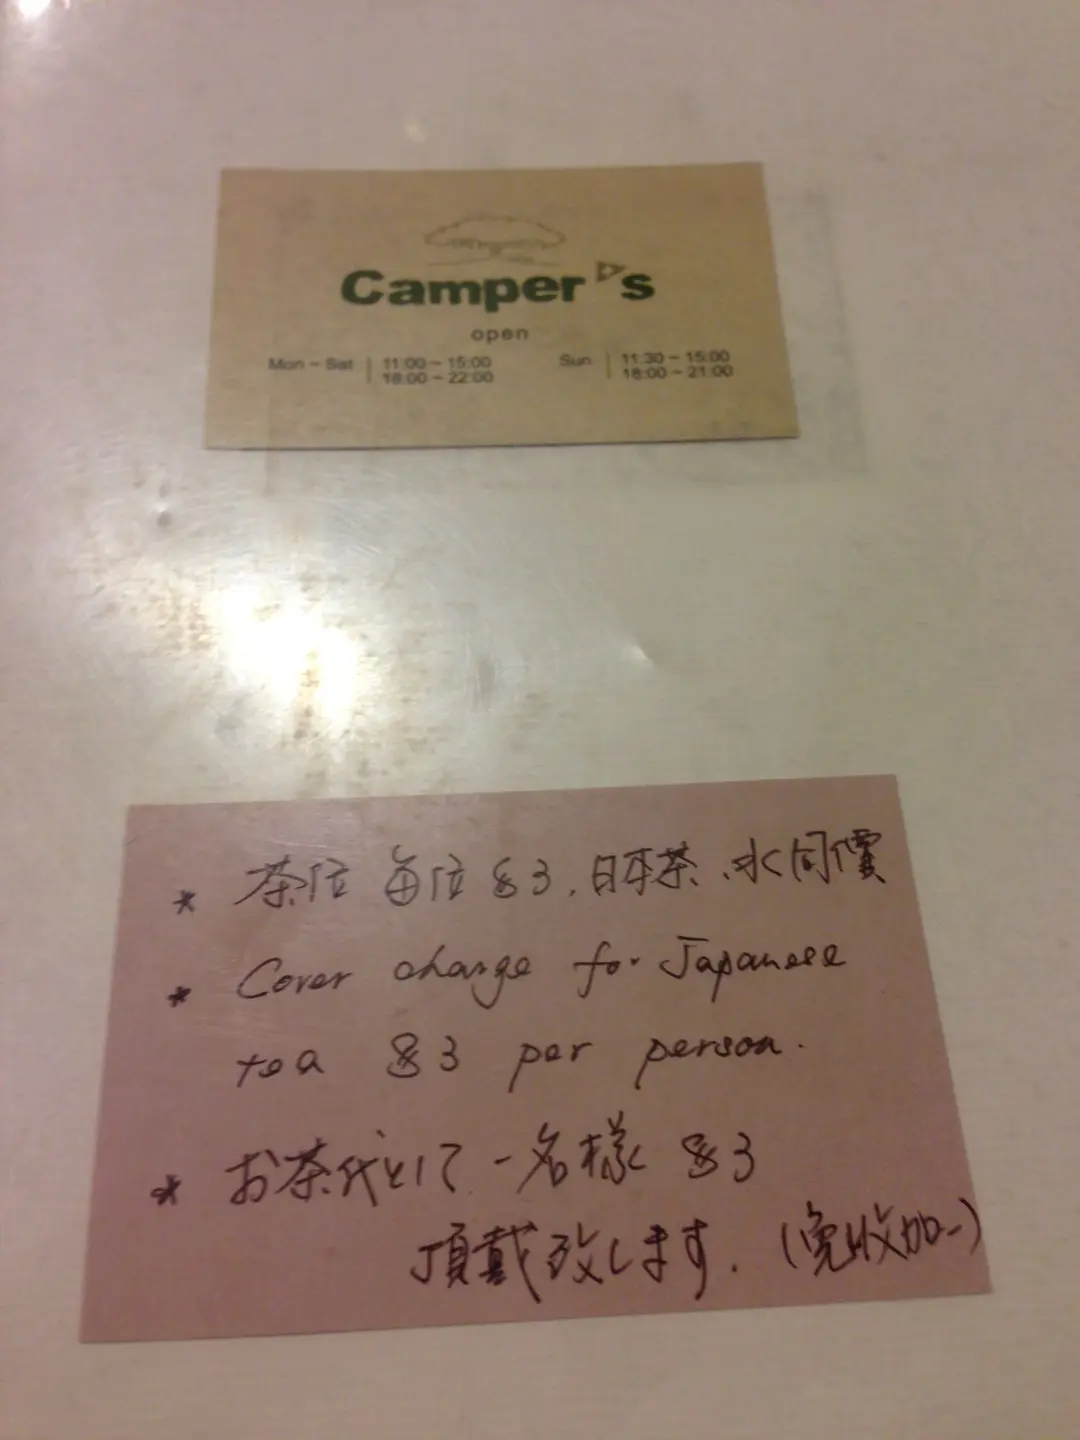 Camper's
open
Mon ~ Sat 11:00 ~ 15:00 Sun 11:30 ~ 15:00
18:00 ~ 22:00 18:00 ~ 21:00
* 茶位 每位 $3, 日本茶、水同價
* Cover charge for Japanese
tea $3 per person.
* お茶代として 一名様 $3
頂戴致します. (免收加一)